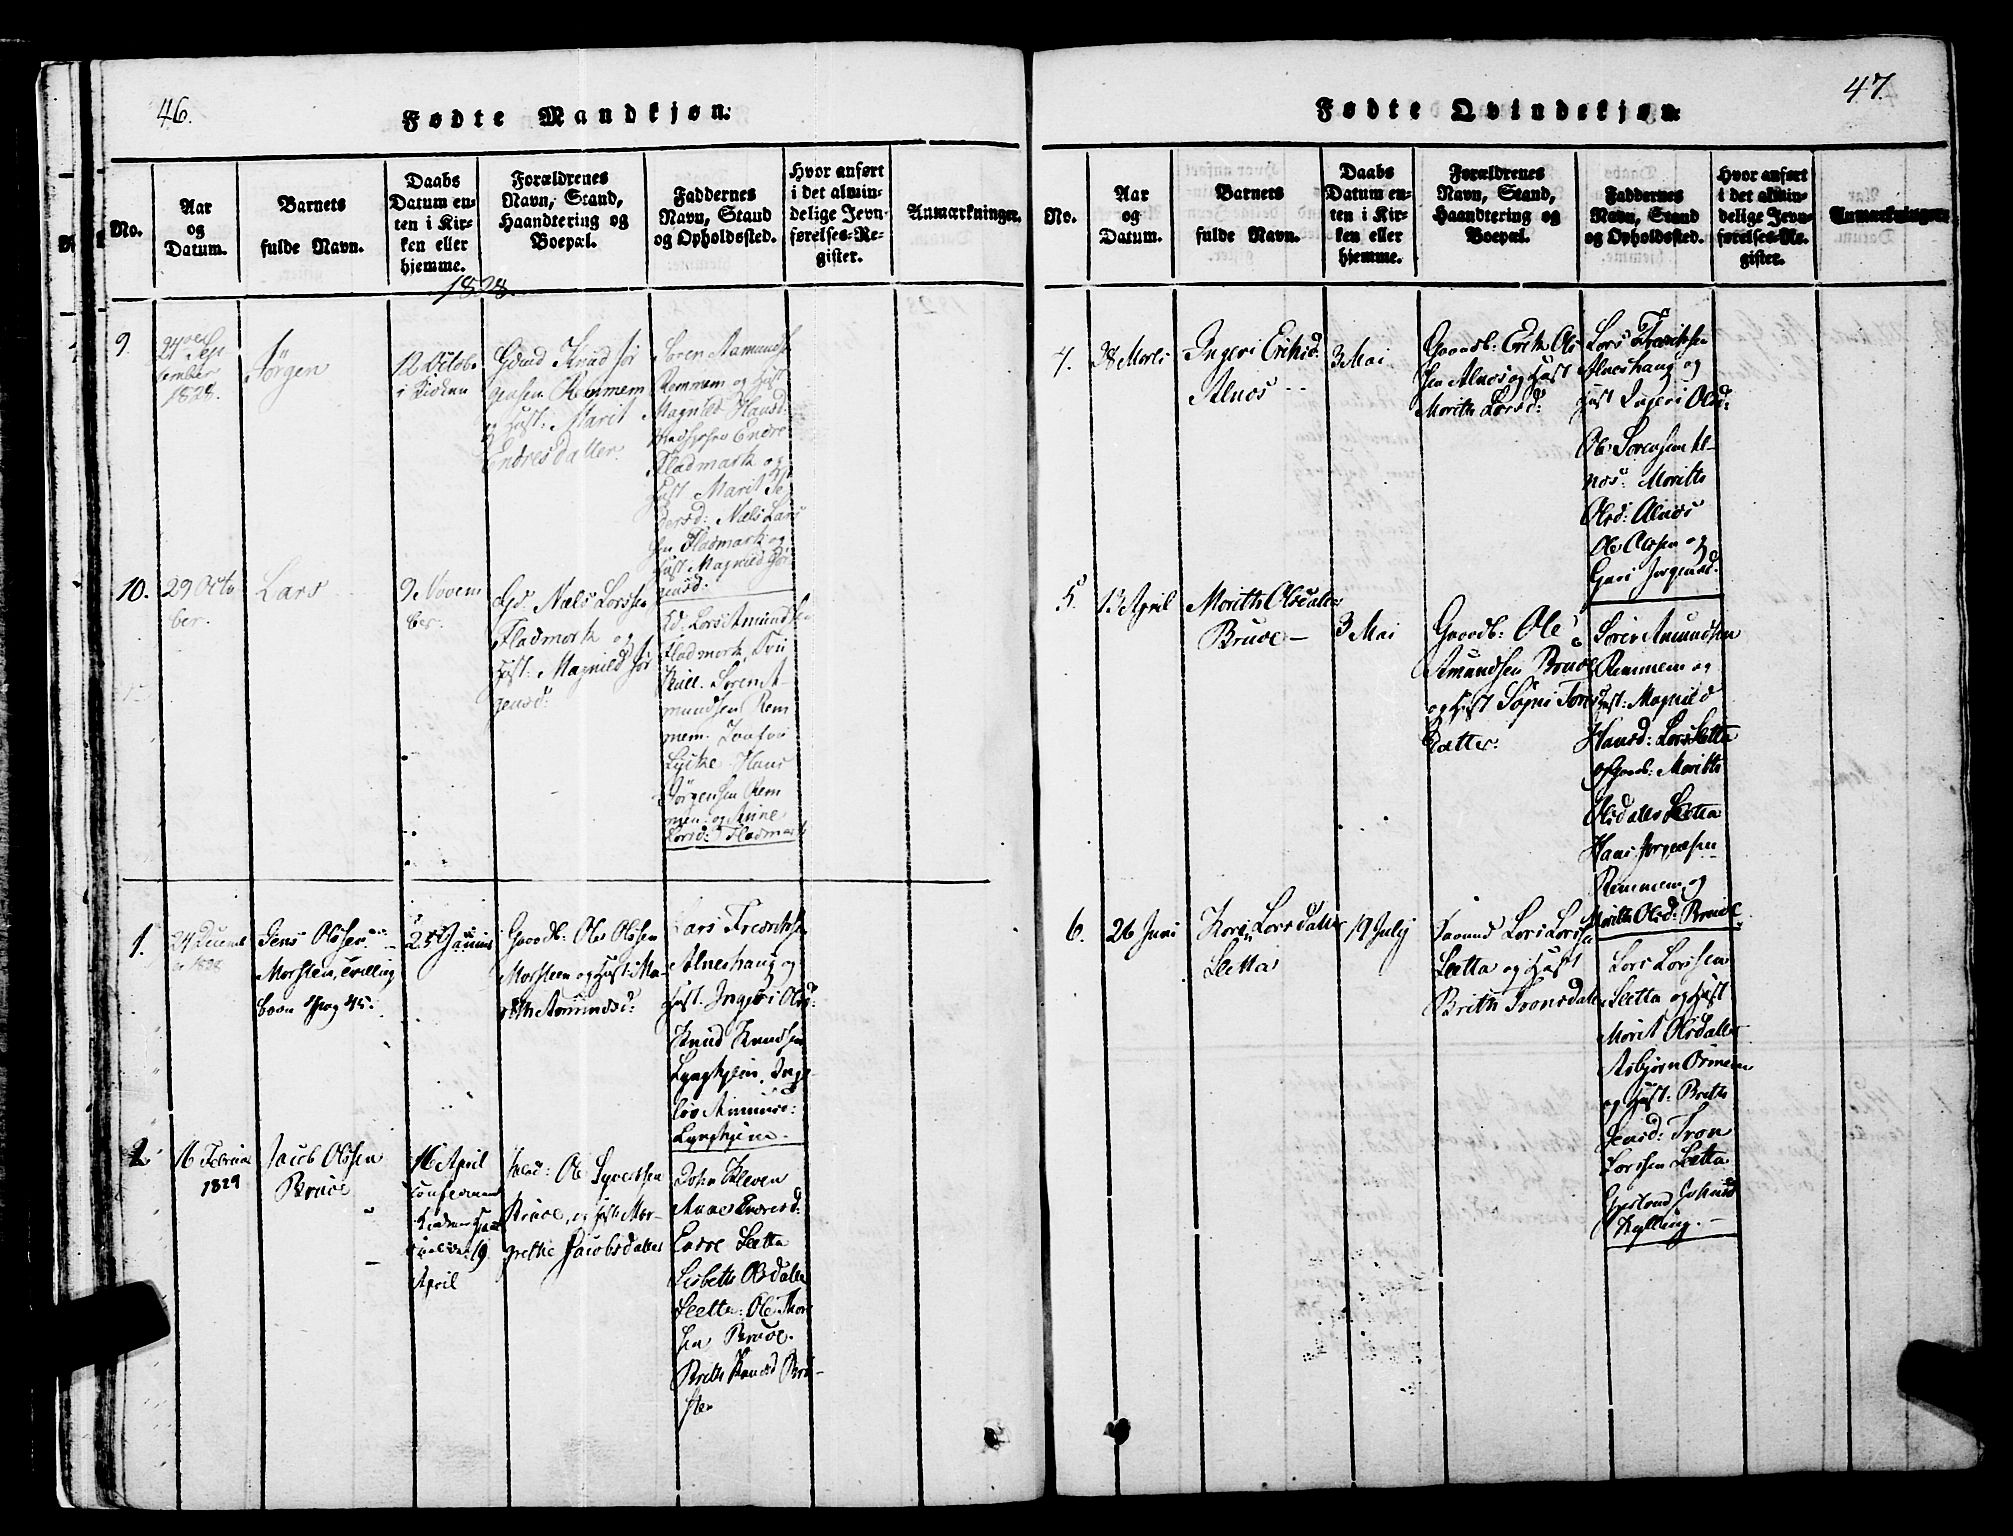 46.
Fødte Mandkjøn:
No.
Aar
og
Datum.
Barnets
fulde Navn.
Daabs
Datum en-
ten i Kir-
ken eller
hjemme.
Forældrenes
Navn, Stand,
Haandtering og
Boepæl.
Faddernes
Navn, Stand
og Opholdssted.
Hvor anført
i det almin-
delige Jevn-
førelses-Re-
gister.
Anmærkninger.
1828.
9.
27 Sep
tember
1828.
Jörgen
12 Octob.
i Kirken
Gmd Knud Jör
gensen Remmem
og Hust: Marit
Endresdatter.
Sören Aamunds
Remmem og Hust
Magnild Hansd:
Endre
Fladmark og
Hust Marit Pe
dersd: Niels Lars
sen Fladmark og
Hust Magnild Jör
gensd:
10.
29 Octo
ber.
Lars
9 Novem
ber.
Gd. Niels Larssen
Fladmark og
Hust: Magnild Jör
gensd:
Lars Amundsen
Fladmark,
Sören A-
mundsen Rem
mem.
Hans
Jörgensen Rem
mem og Anne
Larsd: Fladmark
1.
24 Decemb
1828
Jens Olssen
Morsteen, Tvilling
barn
25 Januar
Gaardb: Ole Olssen
Morsteen og Hust: Ma-
rith Amundsd:
Lars Fredriksen
Alneshaug og
Hust. Ingeri Olsd:
Knud Knudsen
Lynghjem. Inge-
Amunds:
Lynghjem.
2.
16 Februar
1829
Jacob Olssen
Brude
16 April
19
April
Ole Syvertsen
Brude, og Hust: Mar-
grethe Jacobsdatter
John Kleven
Anne Endresd:
Endre Sletta
Lisbeth Olsdatter
Sletta: Ole Thor
sen Brude.
Brith Knudsd Brude-
sten
47.
Fødte Qvindekjøn:
No.
Aar
og
Datum.
Barnets
fulde Navn.
Daabs
Datum en-
ten i Kir-
ken eller
hjemme.
Forældrenes
Navn, Stand,
Haandtering og
Boepæl.
Faddernes
Navn, Stand
og Opholdssted.
Hvor anført
i det almin-
delige Jevn-
førelses-Re-
gister.
Anmærkninger.
4.
28 Marts
Ingeri Eriksd:
Alnes
3 Mai
Gaardb: Erik Ols
sen Alnes og Hust
Marith Larsd:
Lars Fredriksen
Alneshaug og
Hust Ingeri Olsd:
Ole Sörensen Al-
nes. Marith
Olsd: Alnes
Ole Olssen og
Guri Jörgensd:
5.
13 April
Marith Olsdatter
Brude
3 Mai
Gaardb: Ole
Amundsen Brude
og Hust Sögni Tore
datter:
Sören Amundsen
Remmem og
Hust: Magnild
Hansd: Lars Sletta
Marith
Olsdatter Sletta
Hans Jörgensen
Remmem og
Marith Olsd: Brude
6.
26 Juni
Kari Larsdatter
Sletta
19 July
Lars Larssen
Sletta og Hust
Brith Tronsdatter
Lars Larssen
Sletta og Hust
Marit Olsdatter
Asbjörn Ormem
og Hust: Brith
Jensd: Tron
Larssen Sletta
Kylling.